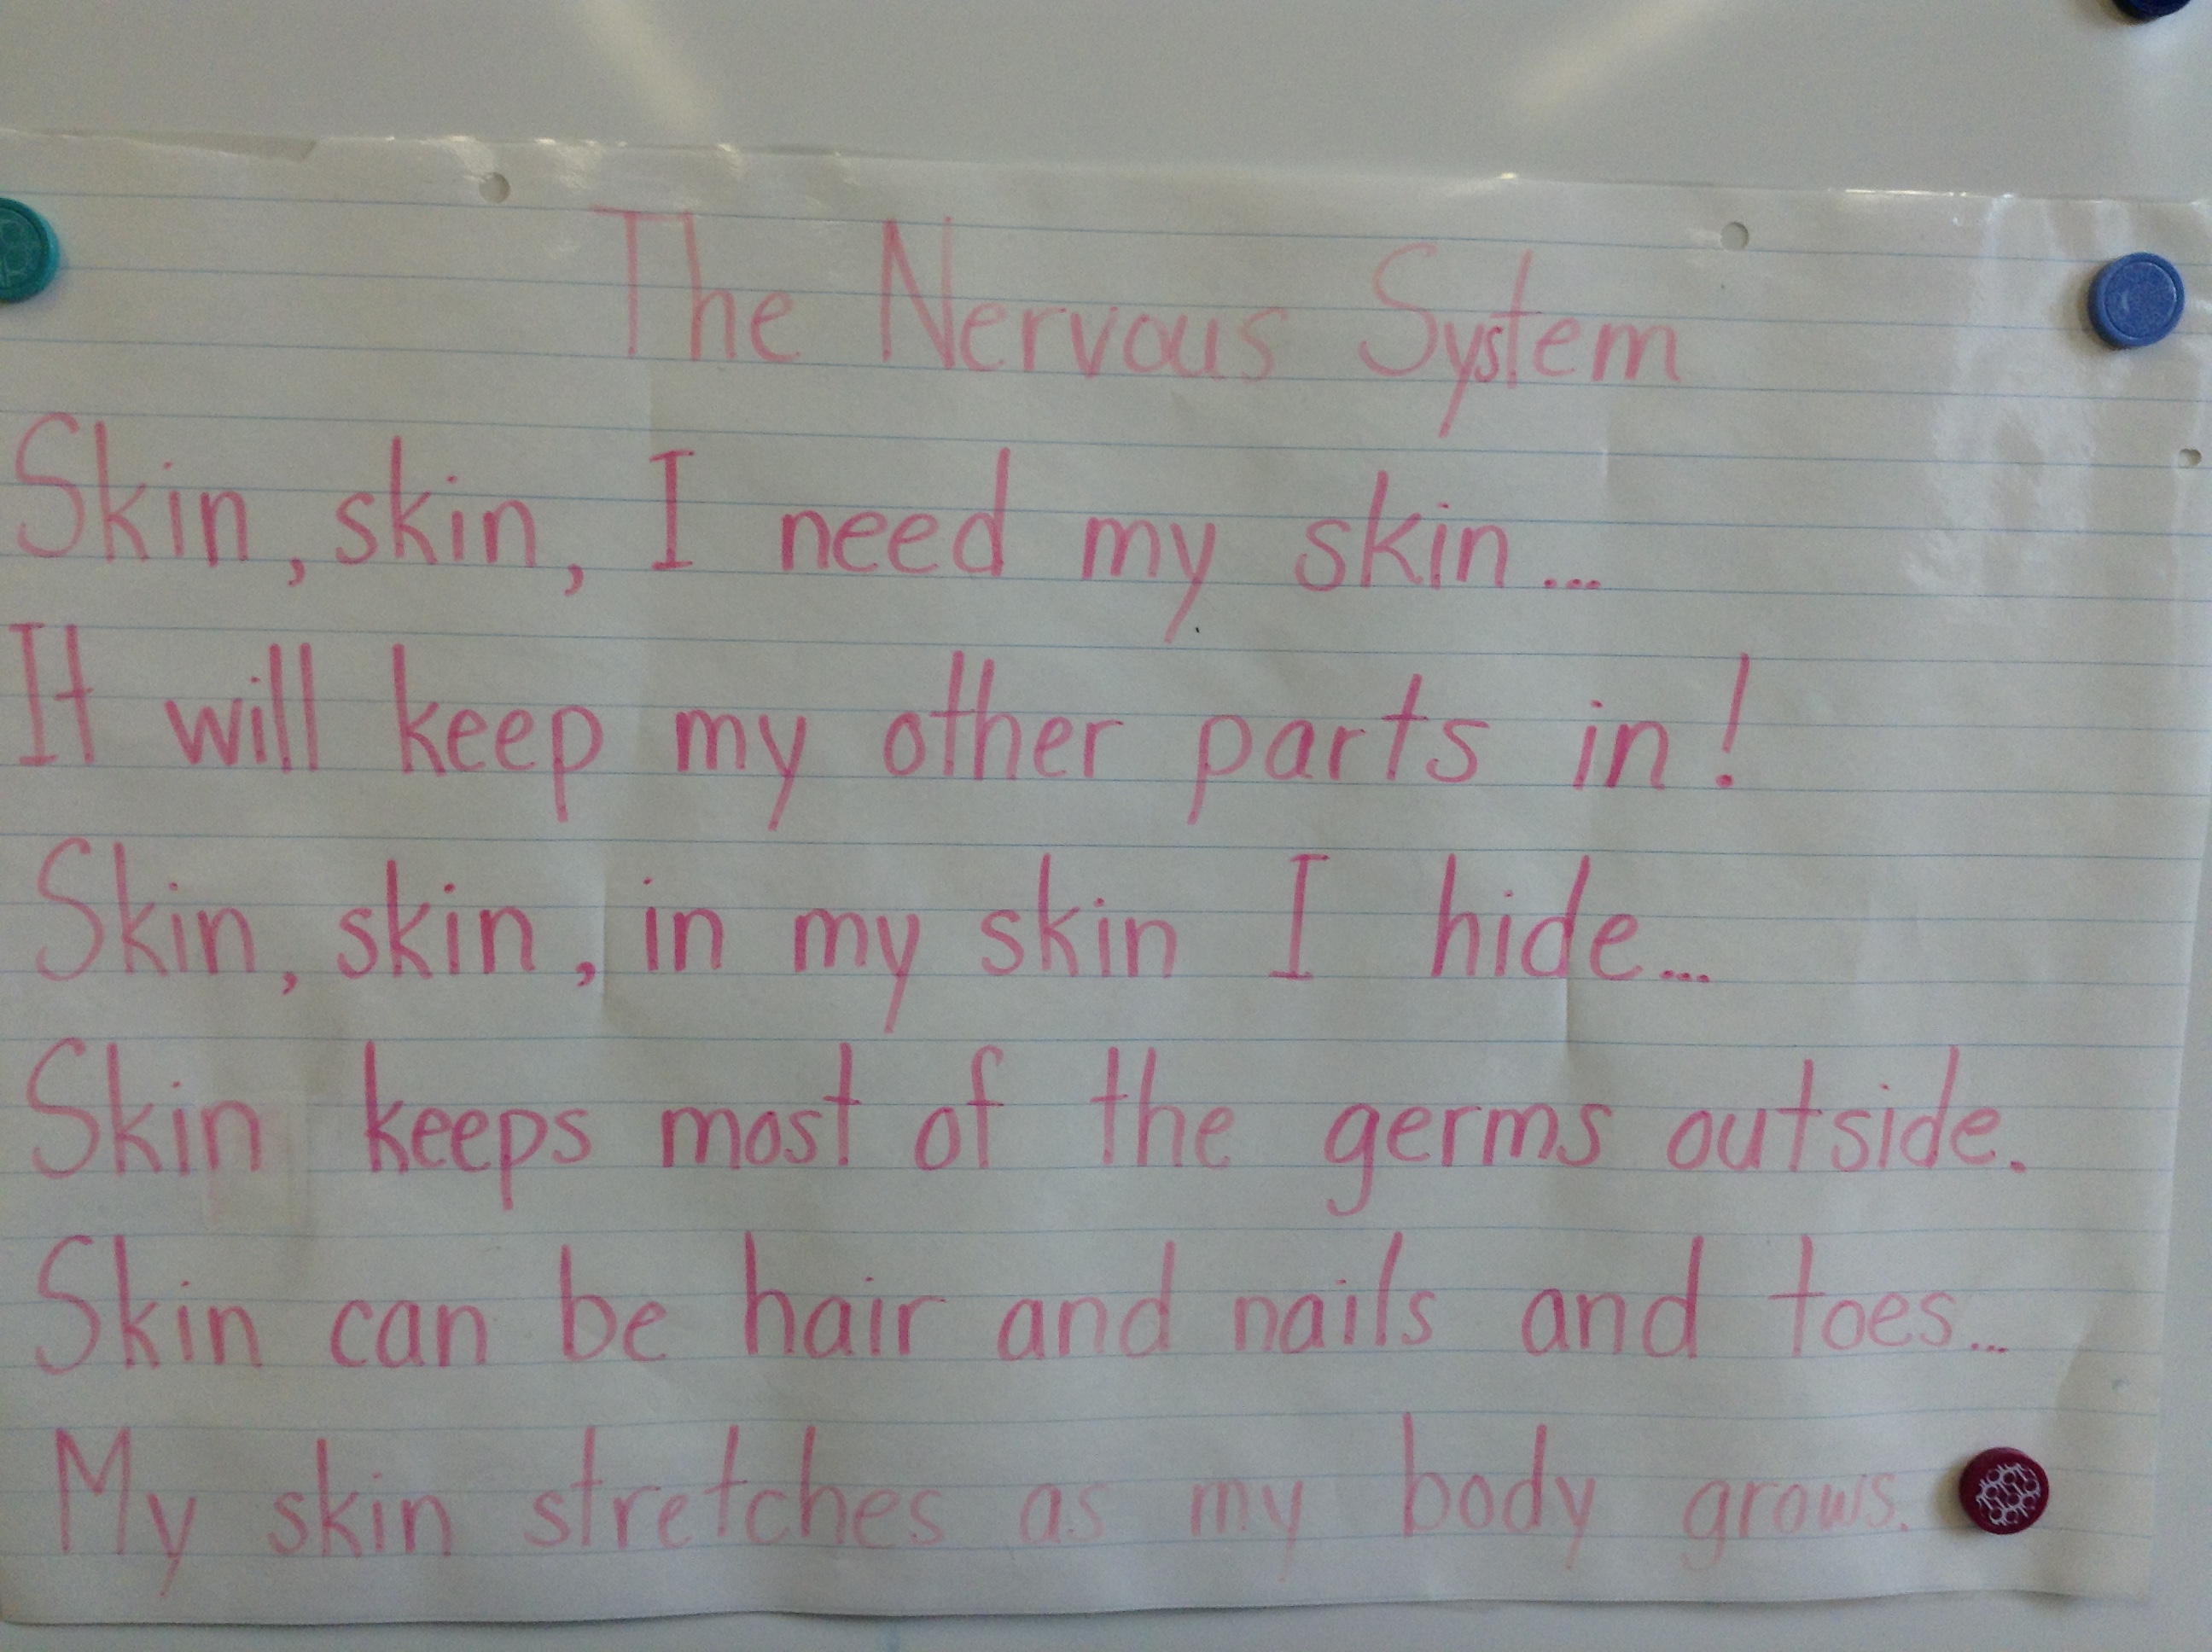 The Nervous System
Skin, skin, I need my skin...
It will keep my other parts in!
Skin, skin, in my skin I hide...
Skin keeps most of the germs outside.
Skin can be hair and nails and toes...
My skin stretches as my body grows.